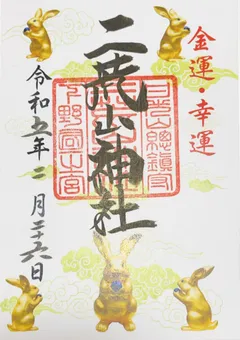 金運・幸運
二荒山神社
下野國一之宮
令和五年二月二十六日